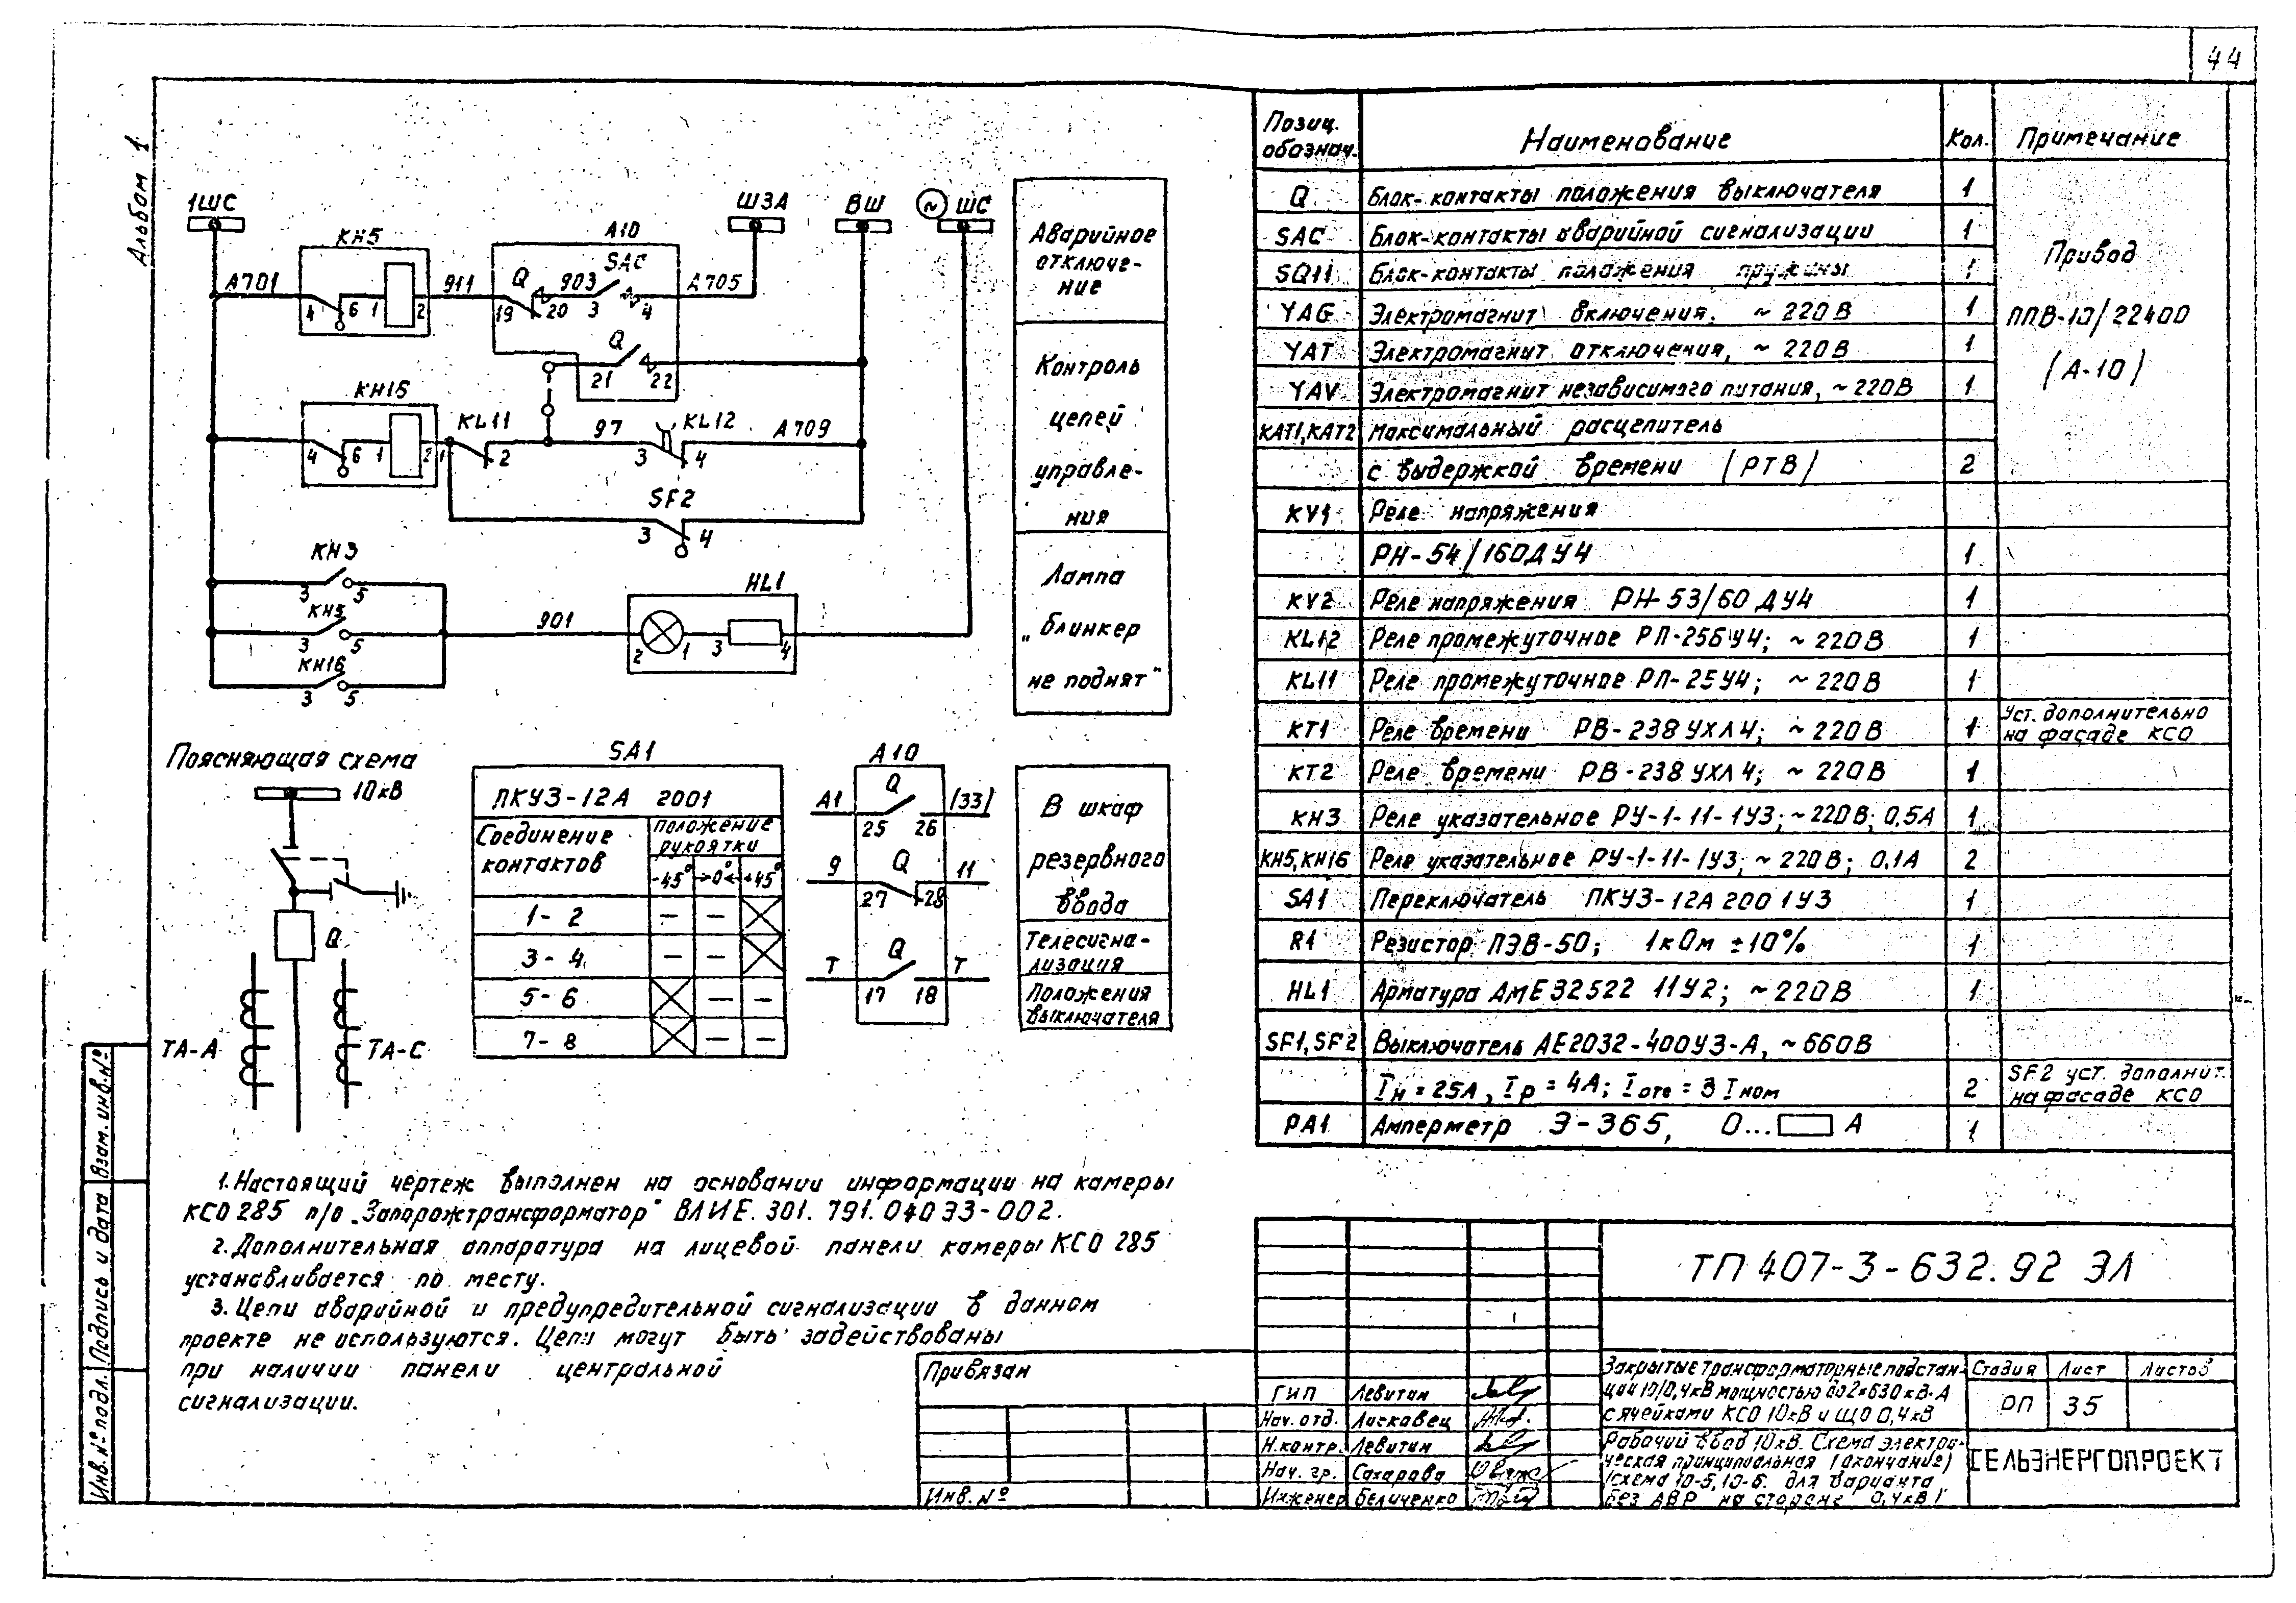 44
Альбом 1
1ШС
ШЗА
ВШ
~ ШС
КН5
А10
А701
4 6 1 2
911
Q 903 SAC
19 20 3 4
А705
Q
21 22
КН16
4 6 1 2
KL11
1 2
97
KL12
3 4
А709
SF2
3 4
КН3
3 5
КН5
3 5
КН16
3 5
901
HL1
2 1 3 4
Аварийное
отключе-
ние
Контроль
цепей
управле-
ния
Лампа
„Блинкер
не поднят"
Поясняющая схема
10кВ
Q
ТА-А
ТА-С
SA1
ПКУЗ-12А 2001
Соединение
контактов
положение
рукоятки
-45° →0°← +45°
1-2 — —
3-4 — —
5-6 — —
7-8 — —
А10
А1 Q (33)
25 26
9 Q 11
27 28
Т Q Т
17 18
В шкаф
резервного
ввода
Телесигна-
лизация
Положения
выключателя
1. Настоящий чертеж выполнен на основании информации на камеры
КСО 285 п/о „Запорожтрансформатор" ВЛИЕ. 301. 791. 040 ЭЗ-002.
2. Дополнительная аппаратура на лицевой панели камеры КСО 285
устанавливается по месту.
3. Цепи аварийной и предупредительной сигнализации в данном
проекте не используются. Цепи могут быть задействованы
при наличии панели центральной
сигнализации.
Позиц. обознач. Наименование Кол. Примечание
Q Блок-контакты положения выключателя 1
SAC Блок-контакты аварийной сигнализации 1
SQ11 Блок-контакты положения пружины 1
YAG Электромагнит включения, ~ 220 В 1
YAT Электромагнит отключения, ~ 220 В 1
YAV Электромагнит независимого питания, ~ 220В 1
Привод
ППВ-10/22400
(А-10)
КАТ1,КАТ2 Максимальный расцепитель
с выдержкой времени (РТВ) 2
KV1 Реле напряжения
РН-54/160ДУ4 1
KV2 Реле напряжения РН-53/60 ДУ4 1
KL12 Реле промежуточное РП-256У4; ~ 220 В 1
KL11 Реле промежуточное РП-25У4; ~ 220 В 1
КТ1 Реле времени РВ-238 УХЛ4; ~ 220 В 1 Уст. дополнительно
на фасаде КСО
КТ2 Реле времени РВ-238 УХЛ 4; ~ 220 В 1
КН3 Реле указательное РУ-1-11-1У3; ~ 220В; 0,5А 1
КН5,КН16 Реле указательное РУ-1-11-1У3; ~ 220 В; 0,1А 2
SA1 Переключатель ПКУЗ-12А 2001У3 1
R1 Резистор ПЭВ-50; 1кОм ±10% 1
HL1 Арматура АМЕ32522 11У2; ~ 220 В 1
SF1,SF2 Выключатель АЕ2032-400У3-А, ~ 660В
Iн = 25А, Iр = 4А; Iотс = 3 Iном 2 SF2 уст. дополнит.
на фасаде КСО
РА1 Амперметр Э-365, 0... А 1
Взам. инв.№
Подпись и дата
Инв.№ подл.
Привязан
Инв. №
ТП 407-3-632.92 ЭЛ
ГИП Левитин
Нач. отд. Лисковец
Н.контр. Левитин
Нач. гр. Сахарова
Инженер Беличенко
Закрытые трансформаторные подстан-
ции 10/0,4кВ мощностью до 2×630 кВ·А
с ячейками КСО 10кВ и ЩО 0,4кВ
Стадия Лист Листов
РП 35
Рабочий ввод 10кВ. Схема электри-
ческая принципиальная (окончание)
(схема 10-5, 10-6. для варианта
без АВР на стороне 0,4кВ)
СЕЛЬЭНЕРГОПРОЕКТ